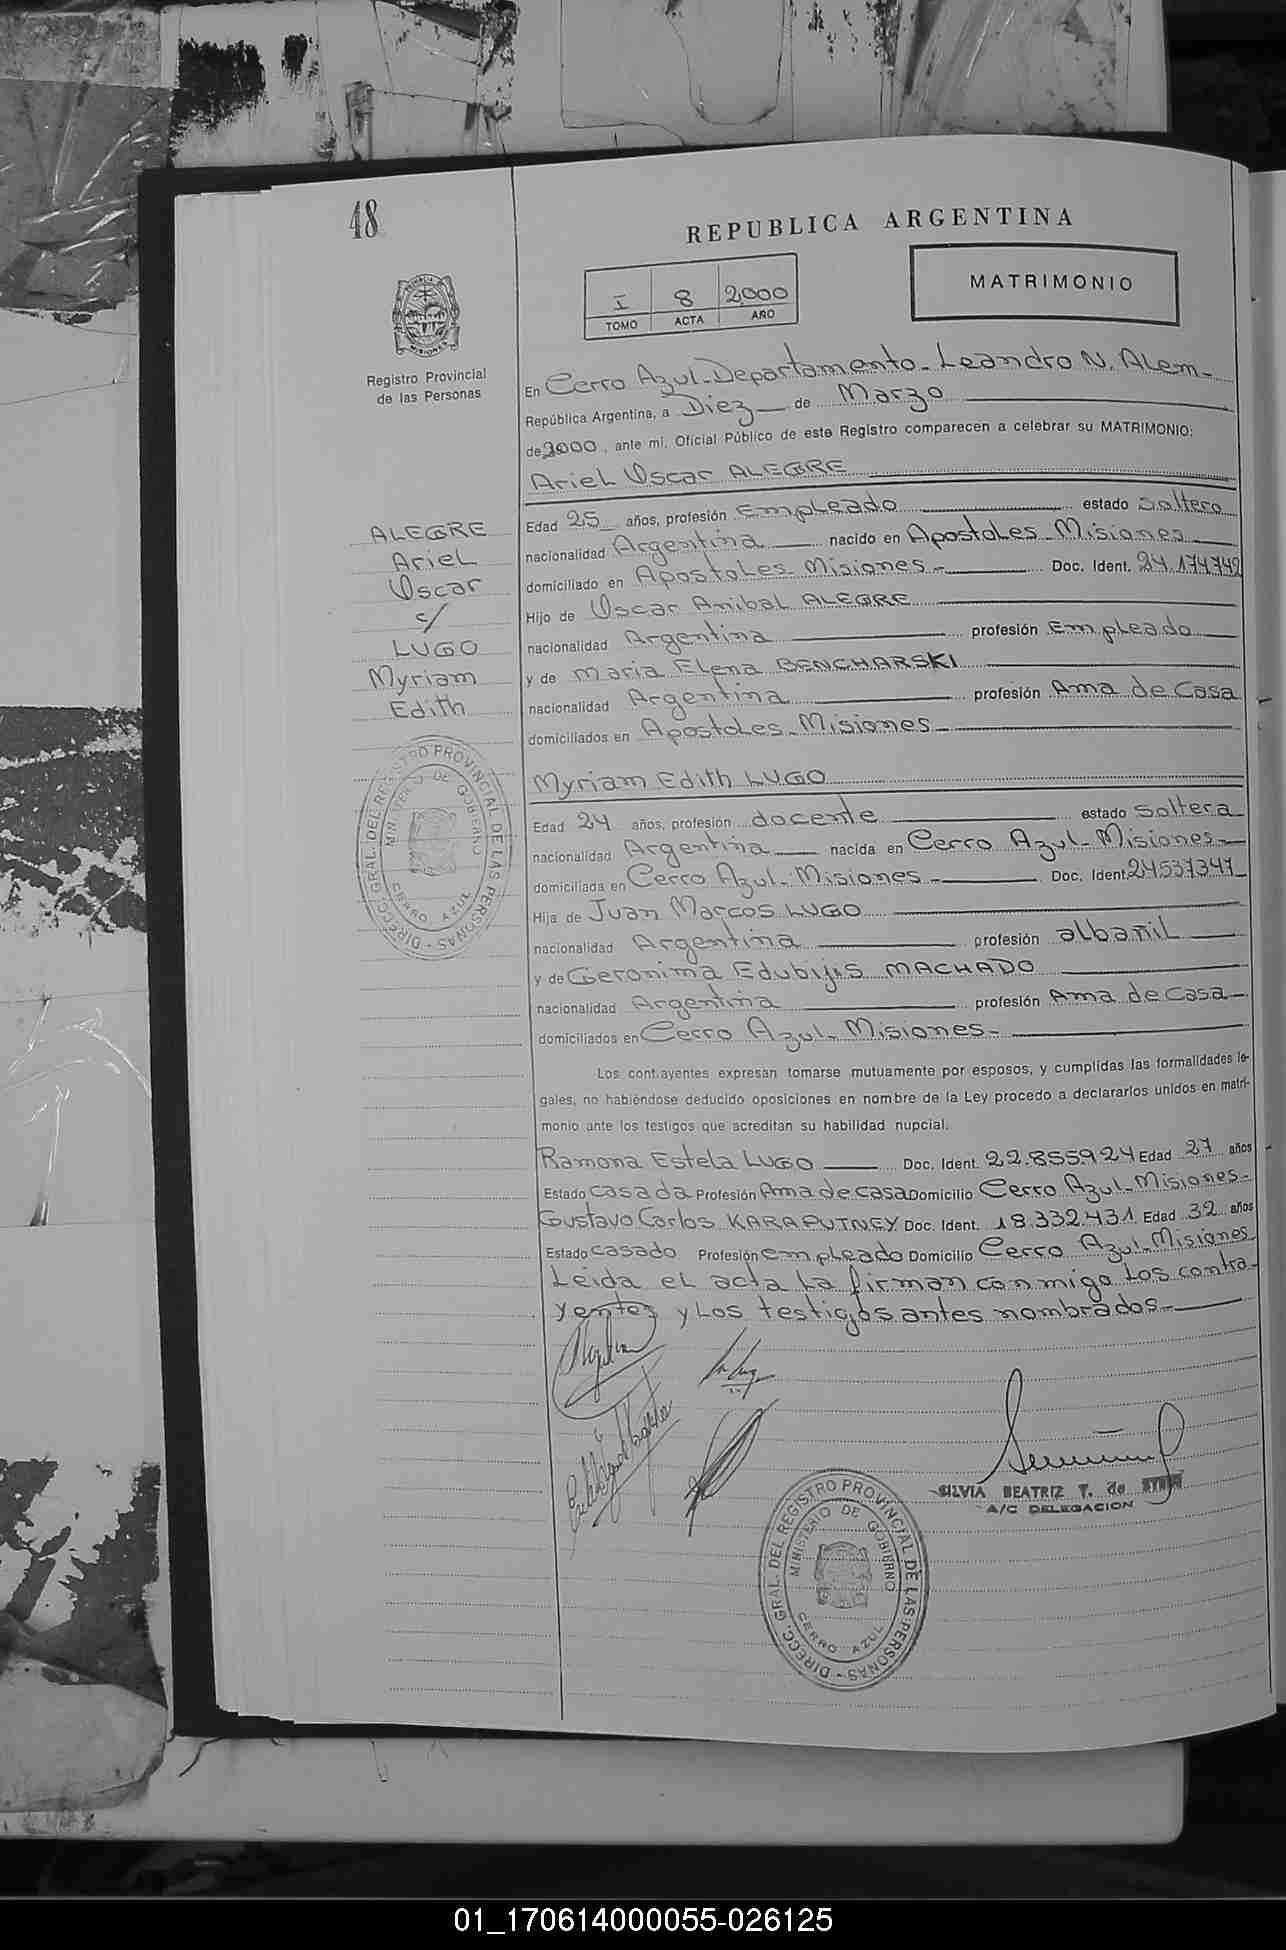 48
REPUBLICA ARGENTINA
I 8 2000
TOMO ACTA AÑO
MATRIMONIO
PROVINCIA
MISIONES
Registro Provincial
de las Personas
En Cerro Azul-Departamento-Leandro N. Alem-
República Argentina, a Diez de Marzo
de 2000, ante mí, Oficial Público de este Registro comparecen a celebrar su MATRIMONIO:
Ariel Oscar ALEGRE
Edad 25 años, profesión Empleado estado Soltero
nacionalidad Argentina nacido en Apostoles-Misiones
domiciliado en Apostoles-Misiones- Doc. Ident. 24.174.742
Hijo de Oscar Anibal ALEGRE
nacionalidad Argentina profesión Empleado
y de Maria Elena BENCHARSKI
nacionalidad Argentina profesión Ama de Casa
domiciliados en Apostoles-Misiones-
ALEGRE
Ariel
Oscar
c/
LUGO
Myriam
Edith
DIRECC. GRAL. DEL REGISTRO PROVINCIAL DE LAS PERSONAS -
MINISTERIO DE GOBIERNO
CERRO AZUL
Myriam Edith LUGO
Edad 24 años, profesión docente estado Soltera
nacionalidad Argentina nacida en Cerro Azul-Misiones-
domiciliada en Cerro Azul-Misiones- Doc. Ident. 24537347
Hija de Juan Marcos LUGO
nacionalidad Argentina profesión albañil
y de Geronima Edubijis MACHADO
nacionalidad Argentina profesión Ama de Casa-
domiciliados en Cerro Azul-Misiones-
Los contrayentes expresan tomarse mutuamente por esposos, y cumplidas las formalidades le-
gales, no habiéndose deducido oposiciones en nombre de la Ley procedo a declararlos unidos en matri-
monio ante los testigos que acreditan su habilidad nupcial.
Ramona Estela LUGO Doc. Ident. 22.855.924 Edad 27 años
Estado casada Profesión Ama de casa Domicilio Cerro Azul-Misiones-
Gustavo Carlos KARAPUTNEY Doc. Ident. 18.332.431 Edad 32 años
Estado casado Profesión empleado Domicilio Cerro Azul-Misiones
Leida el acta la firman conmigo los contra-
yentes y los testigos antes nombrados-
SILVIA BEATRIZ T. de
A/C DELEGACION
DIRECC. GRAL. DEL REGISTRO PROVINCIAL DE LAS PERSONAS -
MINISTERIO DE GOBIERNO
CERRO AZUL
01_170614000055-026125